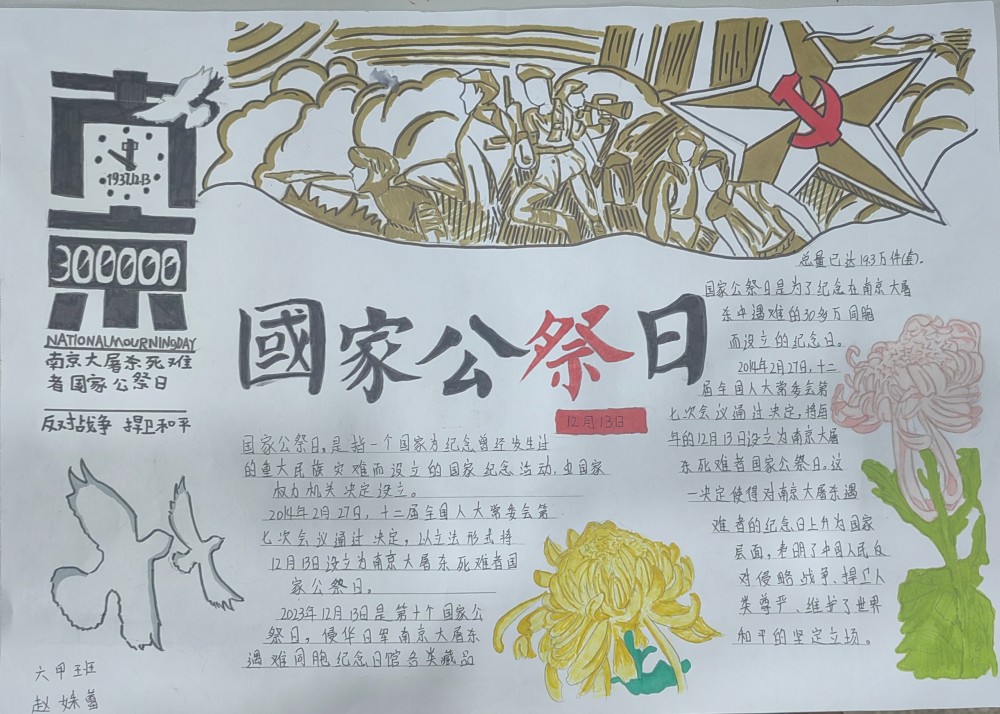 南
1937.12.13
京
300000
NATIONALMOURNINGDAY
南京大屠杀死难
者国家公祭日
反对战争 捍卫和平
國家公祭日
12月13日
国家公祭日,是指一个国家为纪念曾经发生过
的重大民族灾难而设立的国家纪念活动,由国家
权力机关决定设立。
2014年2月27日,十二届全国人大常委会第
七次会议通过决定,以立法形式将
12月13日设立为南京大屠杀死难者国
家公祭日。
2023年12月13日是第十个国家公
祭日,侵华日军南京大屠杀
遇难同胞纪念日馆各类藏品
总量已达193万件(套)。
国家公祭日是为了纪念在南京大屠
杀中遇难的30多万同胞
而设立的纪念日。
2014年2月27日,十二
届全国人大常委会第
七次会议通过决定,将每
年的12月13日设立为南京大屠
杀死难者国家公祭日。这
一决定使得对南京大屠杀遇
难者的纪念日上升为国家
层面,表明了中国人民反
对侵略战争、捍卫人
类尊严、维护了世界
和平的坚定立场。
六甲班
赵姝